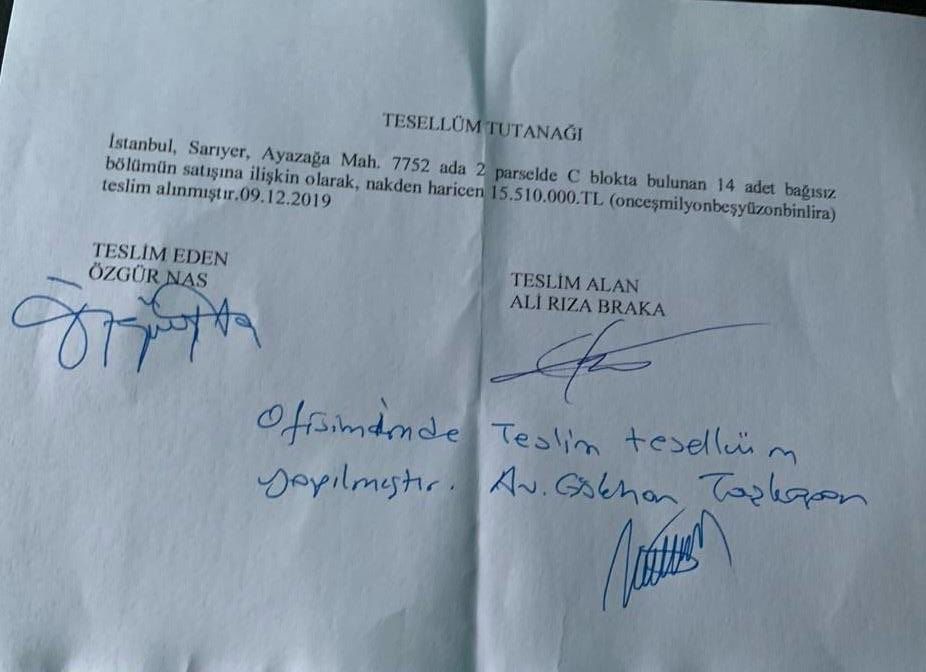 TESELLÜM TUTANAĞI
İstanbul, Sarıyer, Ayazağa Mah. 7752 ada 2 parselde C blokta bulunan 14 adet bağısız
bölümün satışına ilişkin olarak, nakden haricen 15.510.000.TL (onceşmilyonbeşyüzonbinlira)
teslim alınmıştır.09.12.2019
TESLİM EDEN
ÖZGÜR NAS
TESLİM ALAN
ALİ RIZA BRAKA
Ofisimde Teslim tesellüm
yapılmıştır. Av. Gökhan Taşkapan